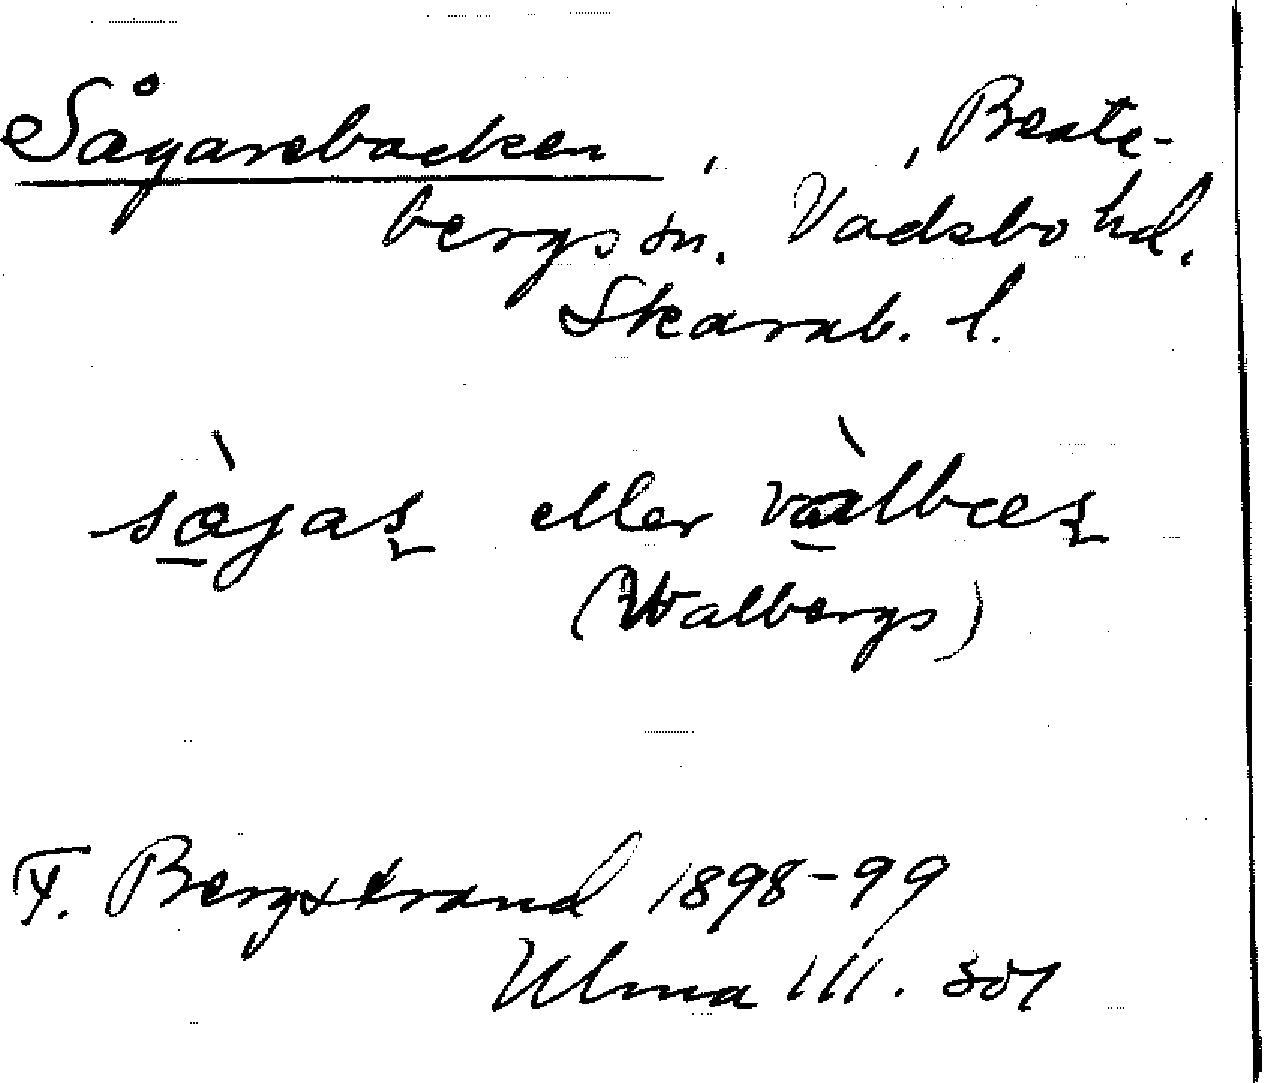 Sågarebacken , , Beate-
bergs sn. Vadsbo hd.
Skarab. l.
sàgas eller vàlbæs
(Walbergs)
F. Bergstrand 1898-99
Ulma 111. s. 7